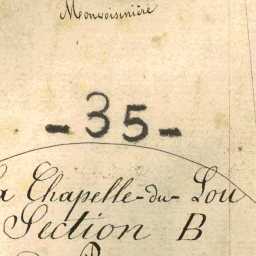 Monvoisinière
- 35 -
La Chapelle-du-Lou
Section B